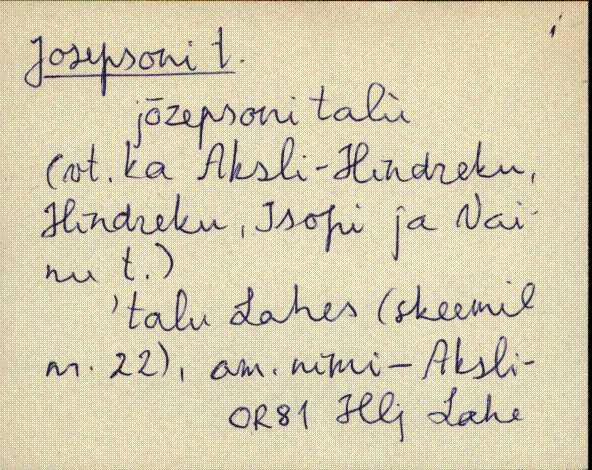 i
Josepsoni t.
jōzepsoni talù
(vt. ka Aksli-Hindreku,
Hindreku, Isopi ja Vai-
nu t.)
'talu Lahes (skeemil
nr. 22), am. nimi – Aksli-
OR81 Hlj Lahe